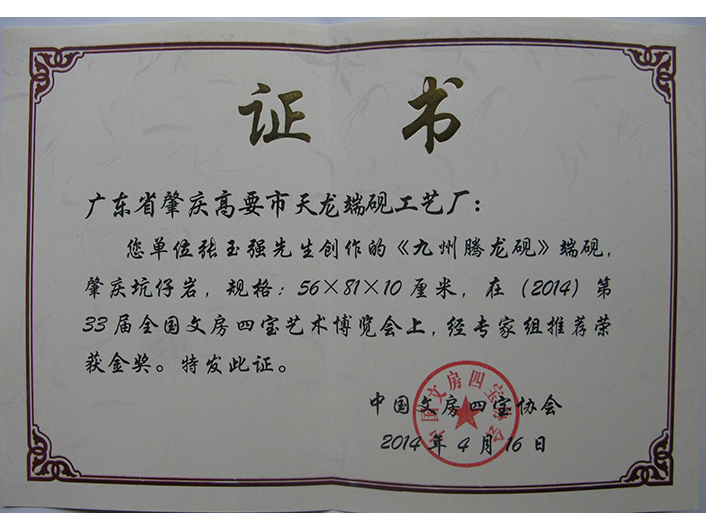 证 书
广东省肇庆高要市天龙端砚工艺厂：
您单位张玉强先生创作的《九州腾龙砚》端砚，
肇庆坑仔岩，规格：56×81×10厘米，在（2014）第
33届全国文房四宝艺术博览会上，经专家组推荐荣
获金奖。特发此证。
中国文房四宝协会
2014年4月16日